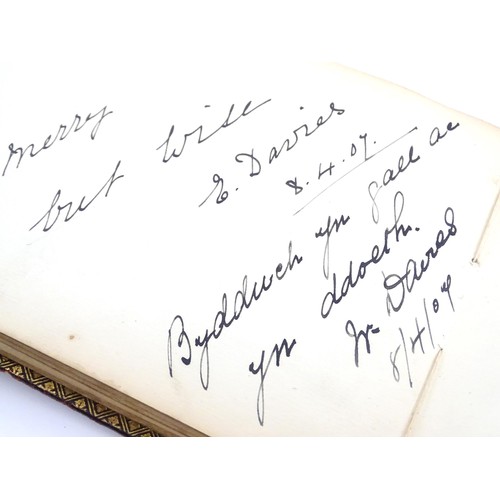 merry
but wise
E. Davies
8.4.07.
Byddwch yn gall ac
yn ddoeth.
Wm Davies
8/4/07